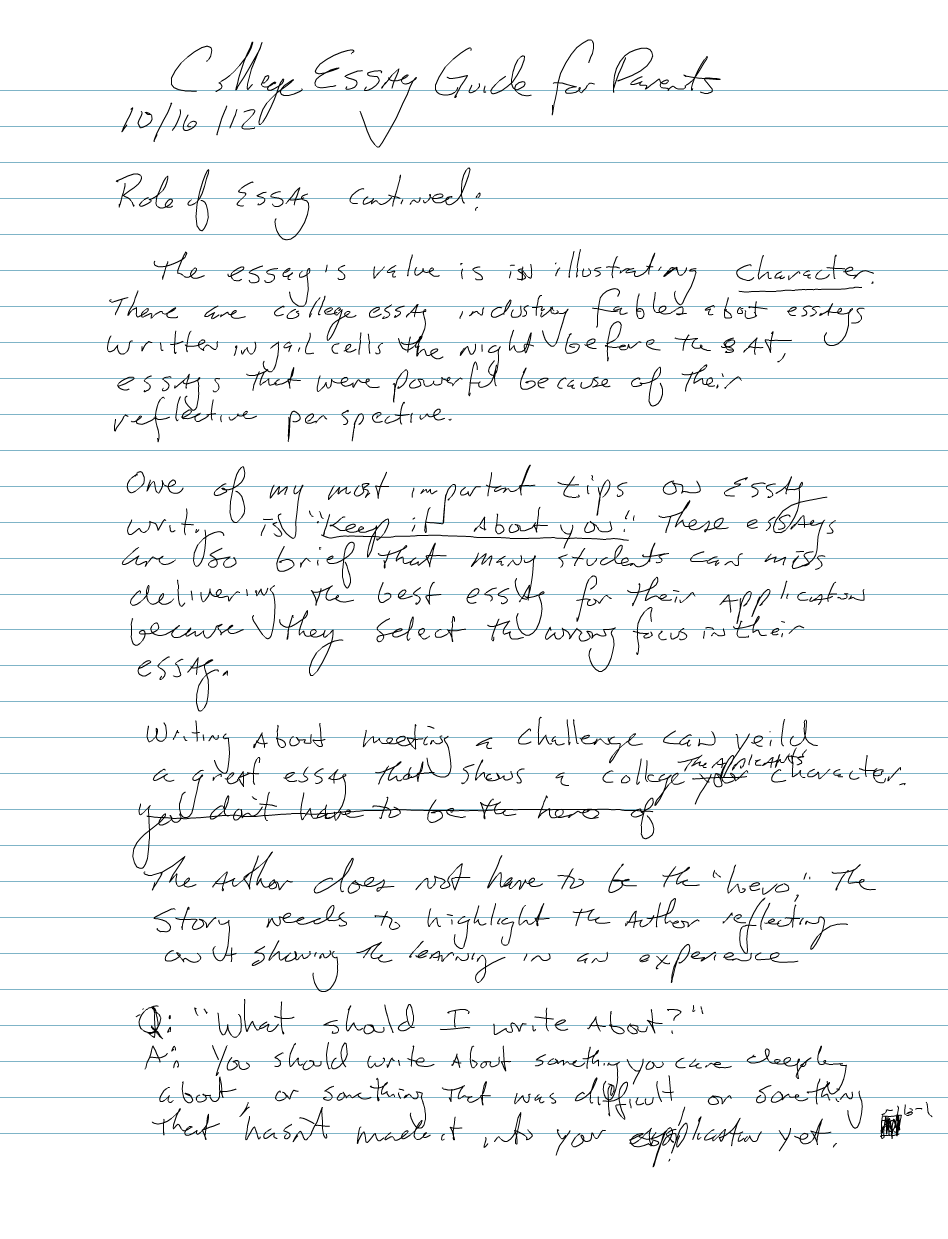 College Essay Guide for Parents
10/16/12
Role of Essay continued:
The essay's value is in illustrating character.
There are college essay industry fables about essays
written in jail cells the night before the SAT,
essays that were powerful because of their
reflective perspective.
One of my most important tips on essay
writing is "Keep it About you." These essays
are so brief that many students can miss
delivering the best essay for their application
because they select the wrong focus in their
essay.
Writing about meeting a challenge can yeild
a great essay that shows a college The Applicants character.
you don't have to be the hero of
The Author does not have to be the "hero," The
story needs to highlight the Author reflecting
on & showing the learning in an experience
Q: "What should I write About?"
A: You should write about something you care deeply
about, or something that was difficult or something
that hasn't made it into your application yet.